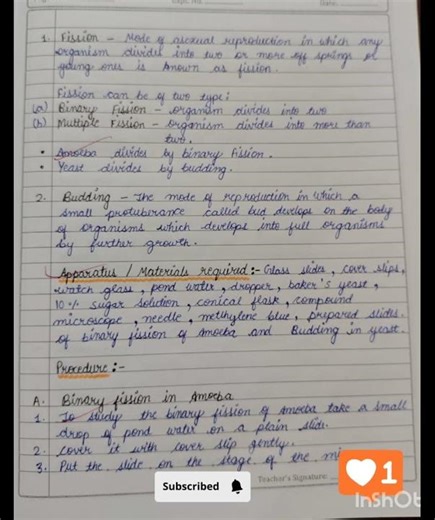 1. Fission - Mode of asexual reproduction in which any
organism divides into two or more off springs or
young ones is known as fission.
Fission can be of two type:
(a) Binary Fission - organism divides into two
(b) Multiple Fission - organism divides into more than
two.
• Amoeba divides by binary fission.
• Yeast divides by budding.
2. Budding - The mode of reproduction in which a
small protuberance called bud develops on the body
of organisms which develops into full organisms
by further growth.
Apparatus / Materials required:- Glass slides, cover slips,
watch glass, pond water, dropper, baker's yeast,
10% sugar solution, conical flask, compound
microscope, needle, methylene blue, prepared slides
of binary fission of Amoeba and Budding in yeast.
Procedure:-
A. Binary fission in Amoeba
1. To study the binary fission of Amoeba take a small
drop of pond water on a plain slide.
2. cover it with cover slip gently.
3. Put the slide on the stage of the
Teacher's Signature:
Subscribed
1
InShOt